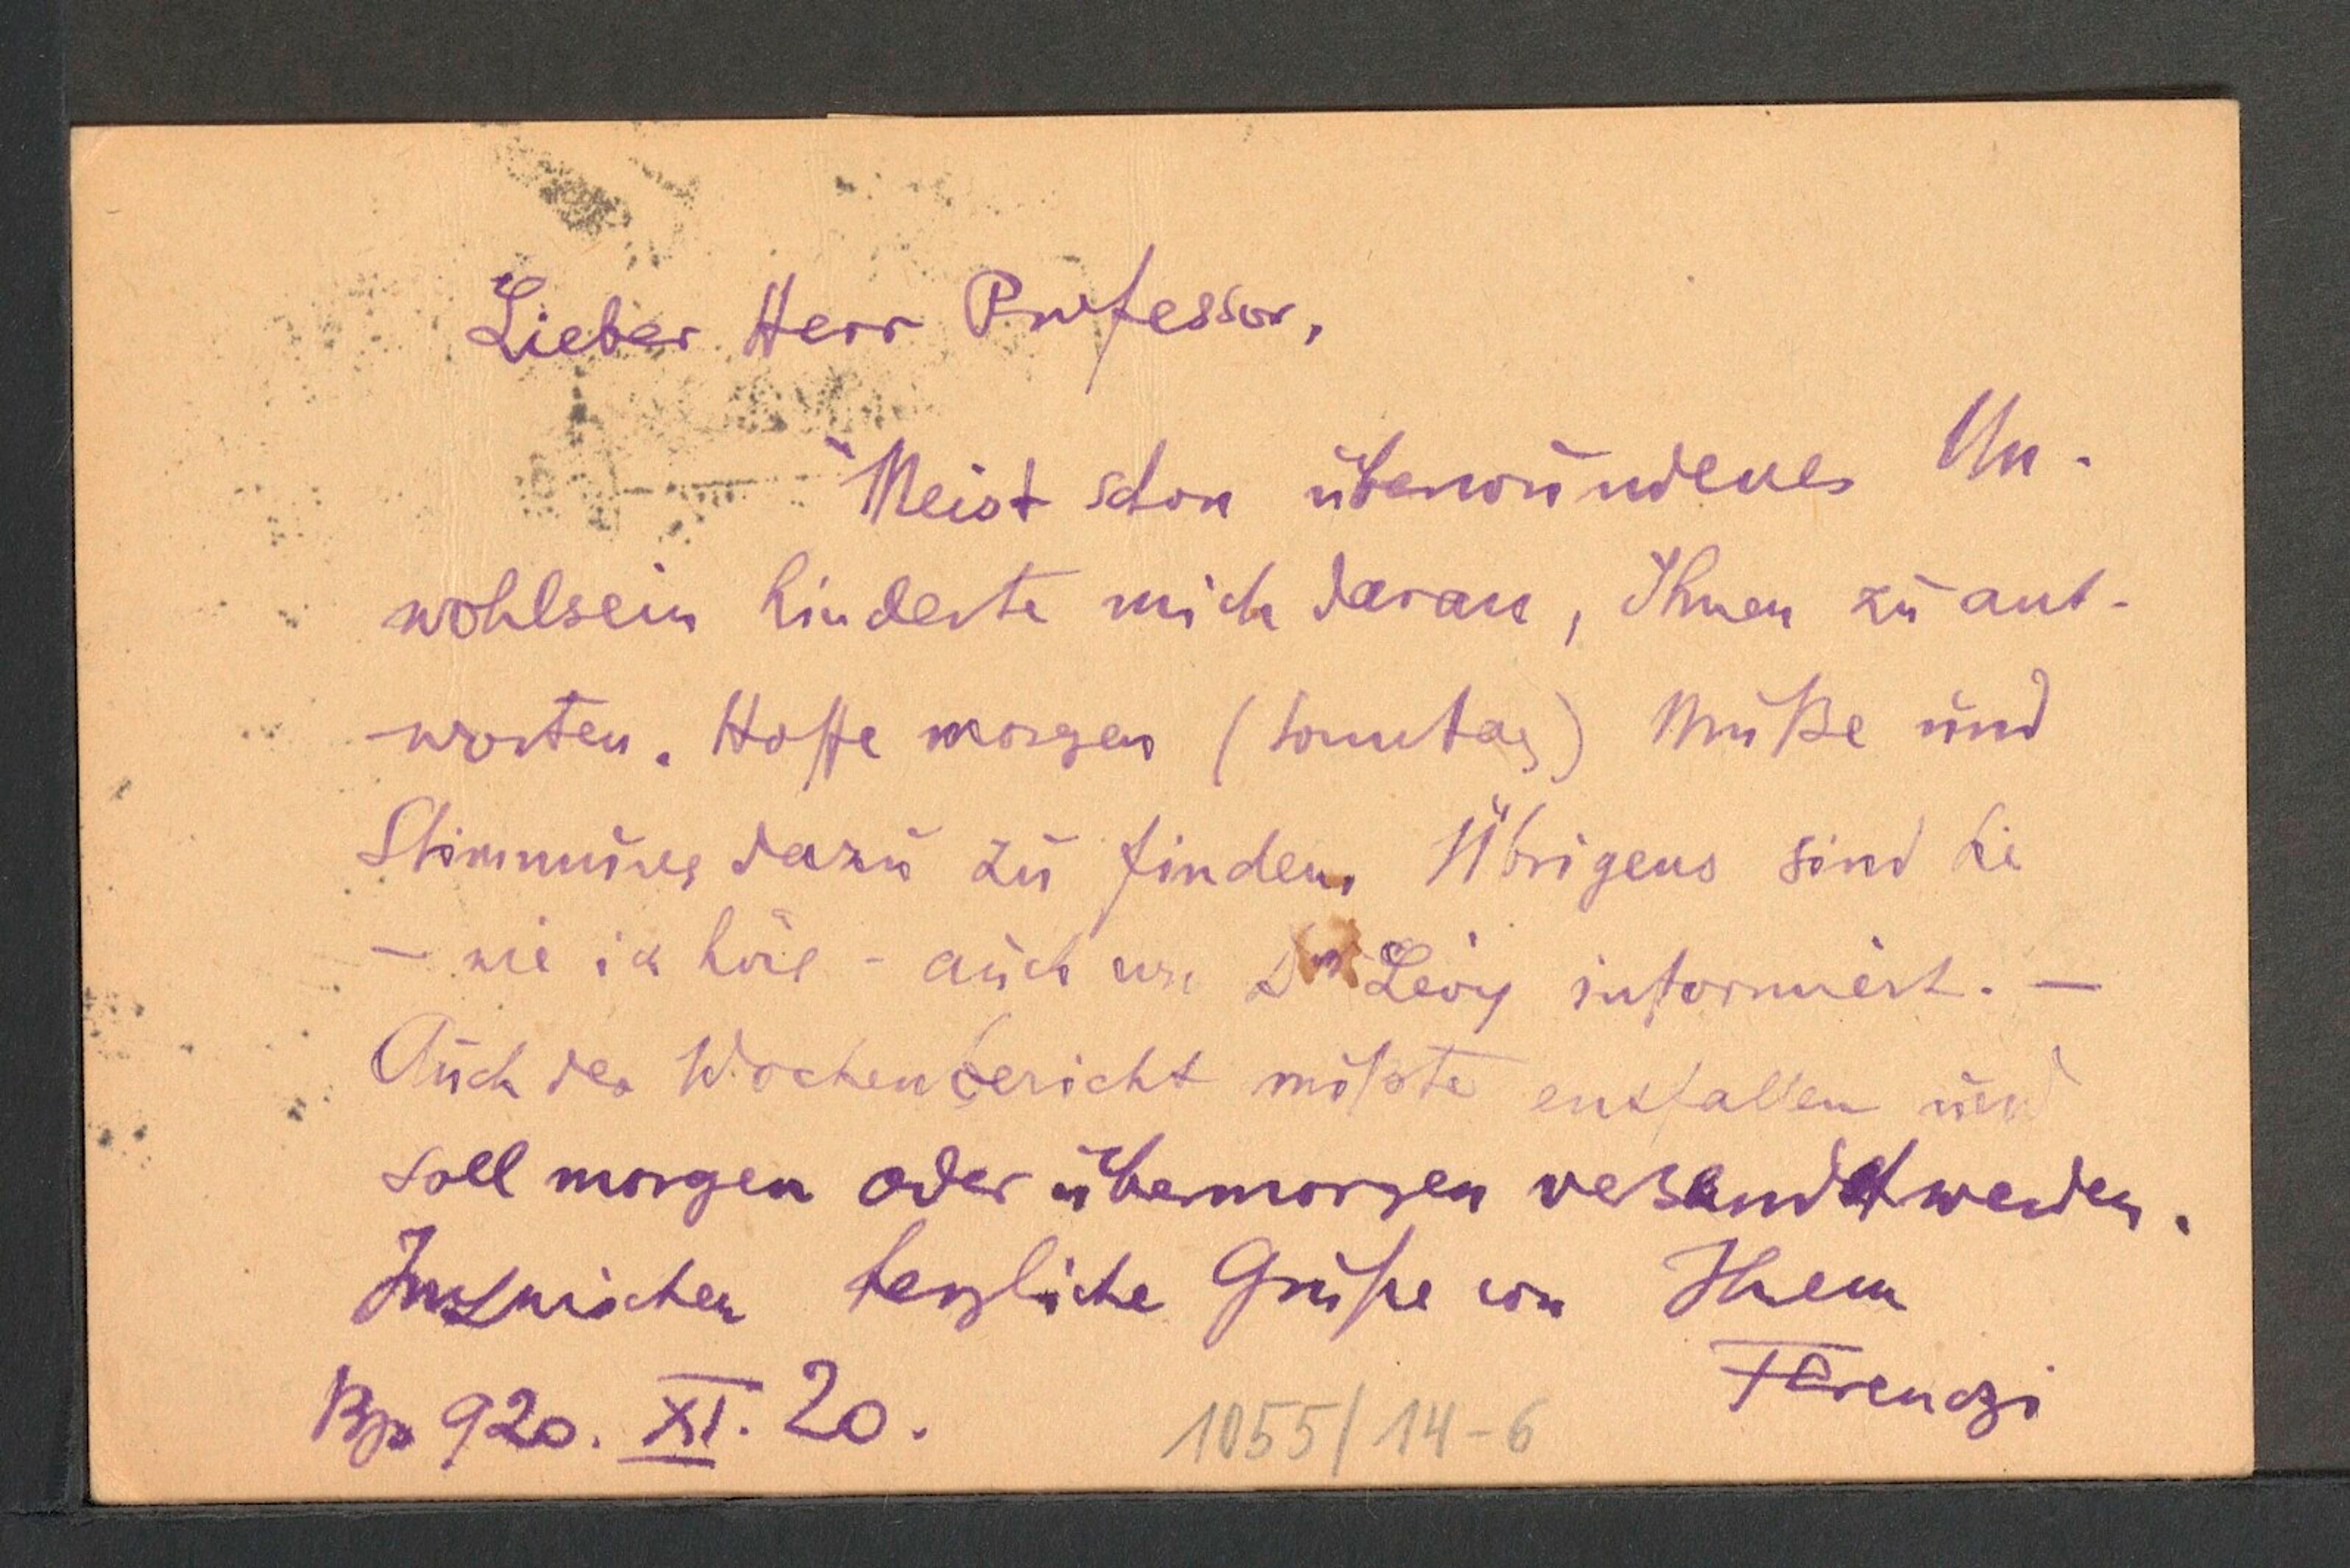 Lieber Herr Professor,
Meist schon überwundenes Un-
wohlsein hinderte mich daran, Ihnen zu ant-
worten. Hoffe morgen (Sonntag) Muße und
Stimmung dazu zu finden. Übrigens sind Sie
– wie ich höre – auch von Dr Lévy informiert. –
Auch der Wochenbericht mußte entfallen und
soll morgen oder übermorgen versandt werden.
Inzwischen herzliche Grüße von Ihrem
Ferenczi
Bp. 920. XI. 20.
1055/14-6